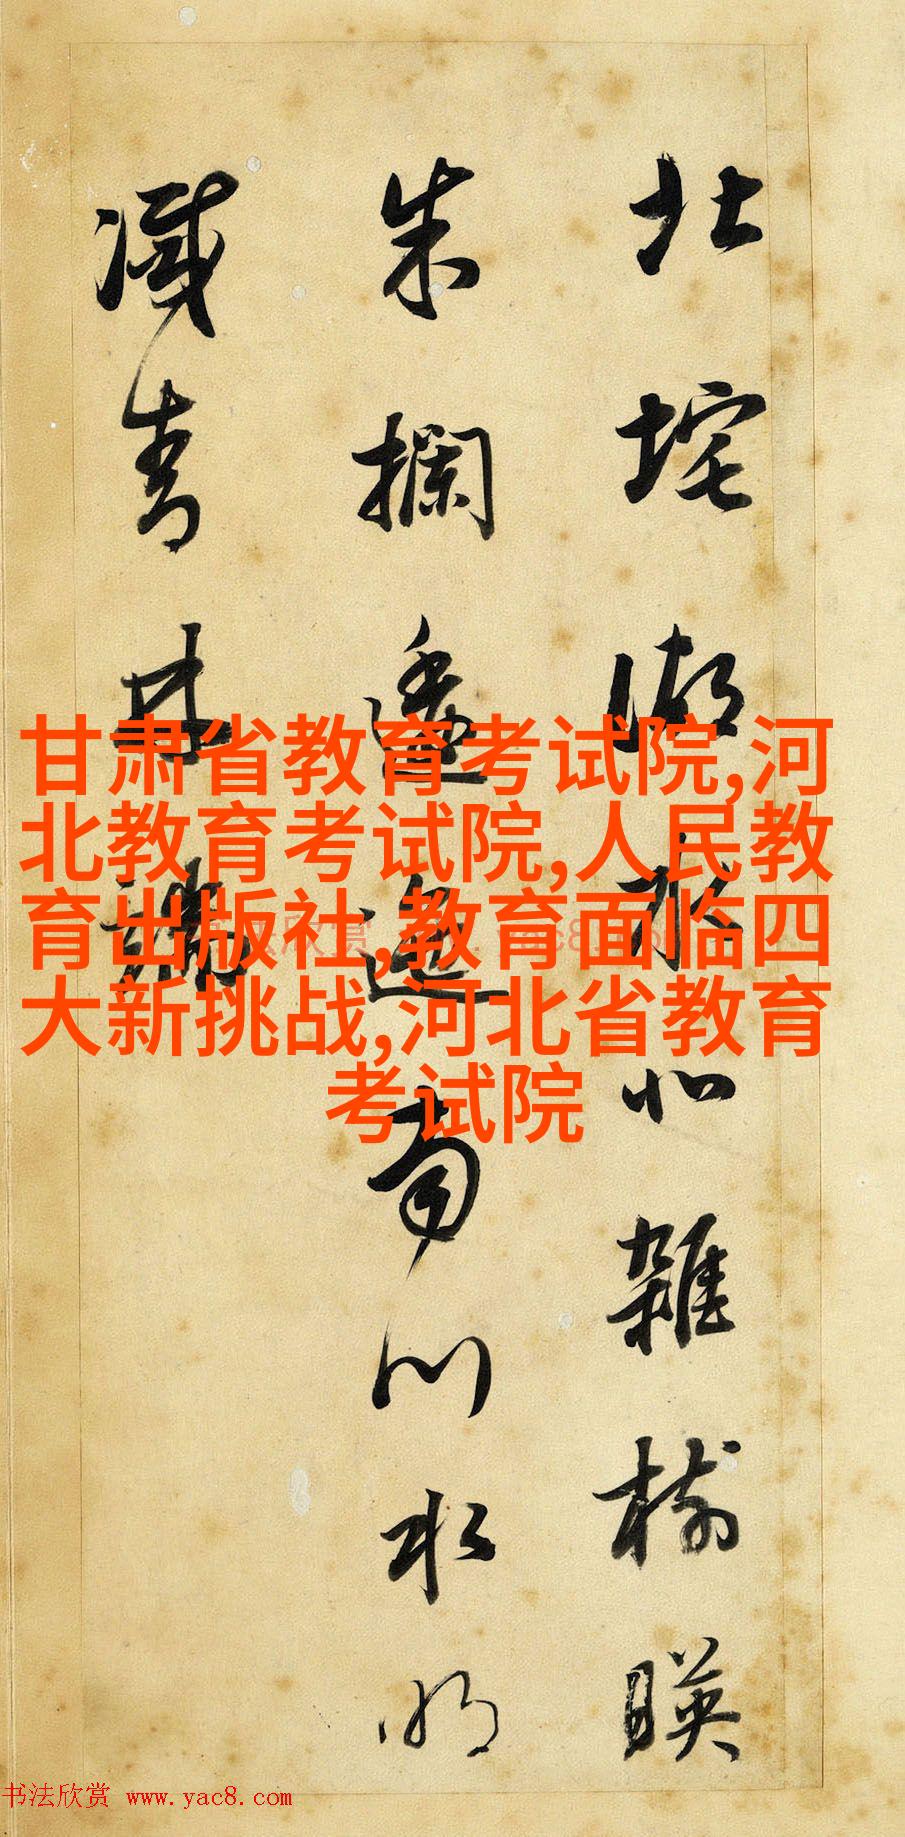 北垞湖水北雜樹映
朱欄逶迤南川水明
滅青林端
甘肃省教育考试院,河
北教育考试院,人民教
育出版社,教育面临四
大新挑战,河北省教育
考试院
书法欣赏 www.yac8.com